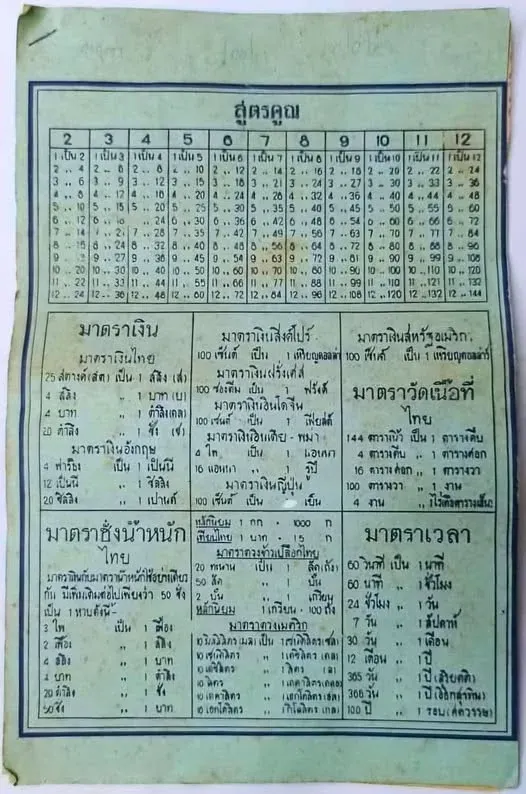 สูตรคูณ
2 3 4 5 6 7 8 9 10 11 12
1 เป็น 2 1 เป็น 3 1 เป็น 4 1 เป็น 5 1 เป็น 6 1 เป็น 7 1 เป็น 8 1 เป็น 9 1 เป็น 10 1 เป็น 11 1 เป็น 12
2 ,, 4 2 ,, 6 2 ,, 8 2 ,, 10 2 ,, 12 2 ,, 14 2 ,, 16 2 ,, 18 2 ,, 20 2 ,, 22 2 ,, 24
3 ,, 6 3 ,, 9 3 ,, 12 3 ,, 15 3 ,, 18 3 ,, 21 3 ,, 24 3 ,, 27 3 ,, 30 3 ,, 33 3 ,, 36
4 ,, 8 4 ,, 12 4 ,, 16 4 ,, 20 4 ,, 24 4 ,, 28 4 ,, 32 4 ,, 36 4 ,, 40 4 ,, 44 4 ,, 48
5 ,, 10 5 ,, 15 5 ,, 20 5 ,, 25 5 ,, 30 5 ,, 35 5 ,, 40 5 ,, 45 5 ,, 50 5 ,, 55 5 ,, 60
6 ,, 12 6 ,, 6 ,, 24 6 ,, 30 6 ,, 36 6 ,, 42 6 ,, 48 6 ,, 54 6 ,, 60 6 ,, 66 6 ,, 72
7 ,, 14 7 ,, 21 7 ,, 28 7 ,, 35 7 ,, 42 7 ,, 49 7 ,, 56 7 ,, 63 7 ,, 70 7 ,, 77 7 ,, 84
8 ,, 16 8 ,, 24 8 ,, 32 8 ,, 40 8 ,, 48 8 ,, 56 8 ,, 64 8 ,, 72 8 ,, 80 8 ,, 88 8 ,, 96
9 ,, 9 ,, 27 9 ,, 36 9 ,, 45 9 ,, 54 9 ,, 63 9 ,, 72 9 ,, 81 9 ,, 90 9 ,, 99 9 ,, 108
10 ,, 20 10 ,, 30 10 ,, 40 10 ,, 50 10 ,, 60 10 ,, 70 10 ,, 80 10 ,, 90 10 ,, 100 10 ,, 110 10 ,, 120
11 ,, 22 11 ,, 33 11 ,, 44 11 ,, 55 11 ,, 66 11 ,, 77 11 ,, 88 11 ,, 99 11 ,, 110 11 ,, 121 11 ,, 132
12 ,, 24 12 ,, 36 12 ,, 48 12 ,, 60 12 ,, 72 12 ,, 84 12 ,, 96 12 ,, 108 12 ,, 120 12 ,, 132 12 ,, 144
มาตราเงิน
มาตราเงินไทย
25 สตางค์ (สต) เป็น 1 สลึง (ส)
4 สลึง ,, 1 บาท (บ)
4 บาท ,, 1 ตำลึง (ตล)
20 ตำลึง ,, 1 ชั่ง (ช)
มาตราเงินอังกฤษ
4 ฟาร์ธิง เป็น 1 เป็นนี
12 เป็นนี ,, 1 ชิลลิง
20 ชิลลิง ,, 1 เปานด์
มาตราเงินสิงคโปร์
100 เซ็นต์ เป็น 1 เหรียญดอลลาร์
มาตราเงินฝรั่งเศส
100 ซองตีม เป็น 1 ฟรังค์
มาตราเงินอินโดจีน
100 เซ็นต์ เป็น 1 เปียสต์
มาตราเงินอินเดีย - พม่า
4 ไพ เป็น 1 แอนนา
16 แอนนา ,, 1 รูปี
มาตราเงินญี่ปุ่น
100 เซ็นต์ เป็น 1 เย็น
มาตราเงินสหรัฐอเมริกา
100 เซ็นต์ เป็น 1 เหรียญดอลลาร์
มาตราวัดเนื้อที่
ไทย
144 ตารางนิ้ว เป็น 1 ตารางคืบ
4 ตารางคืบ ,, 1 ตารางศอก
16 ตารางศอก ,, 1 ตารางวา
100 ตารางวา ,, 1 งาน
4 งาน ,, 1 ไร่
มาตราชั่งน้ำหนัก
ไทย
มาตราเงินกับมาตราน้ำหนักใช้อย่างเดียว
กัน มีเพิ่มเติมต่อไปเพียงว่า 50 ชั่ง
เป็น 1 หาบดังนี้-
3 ไพ เป็น 1 เฟื้อง
2 เฟื้อง ,, 1 สลึง
4 สลึง ,, 1 บาท
4 บาท ,, 1 ตำลึง
20 ตำลึง ,, 1 ชั่ง
50 ชั่ง ,, 1 บาท
หลักนิยม 1 กก - 1000 ก
เทียบไทย 1 บาท - 15 ก
มาตราตวงข้าวเปลือกไทย
20 ทะนาน เป็น 1 สัด (ถัง)
50 สัด ,, 1 บั้น
2 บั้น ,, 1 เกวียน
หลักนิยม 1 เกวียน - 100 ถัง
มาตราตวงเมตริก
10 มิลลิลิตร (มล) เป็น 1 เซนติลิตร (ซล)
10 เซนติลิตร ,, 1 เดซิลิตร (ดล)
10 เดซิลิตร ,, 1 ลิตร (ล)
10 ลิตร ,, 1 เดคาลิตร
10 เดคาลิตร ,, 1 เฮกโตลิตร (ฮล)
10 เฮกโตลิตร ,, 1 กิโลลิตร (กล)
มาตราเวลา
60 วินาที เป็น 1 นาที
60 นาที ,, 1 ชั่วโมง
24 ชั่วโมง ,, 1 วัน
7 วัน ,, 1 สัปดาห์
30 วัน ,, 1 เดือน
12 เดือน ,, 1 ปี
365 วัน ,, 1 ปี
366 วัน ,, 1 ปี (อธิกสุรทิน)
100 ปี ,, 1 รอบ (ศตวรรษ)